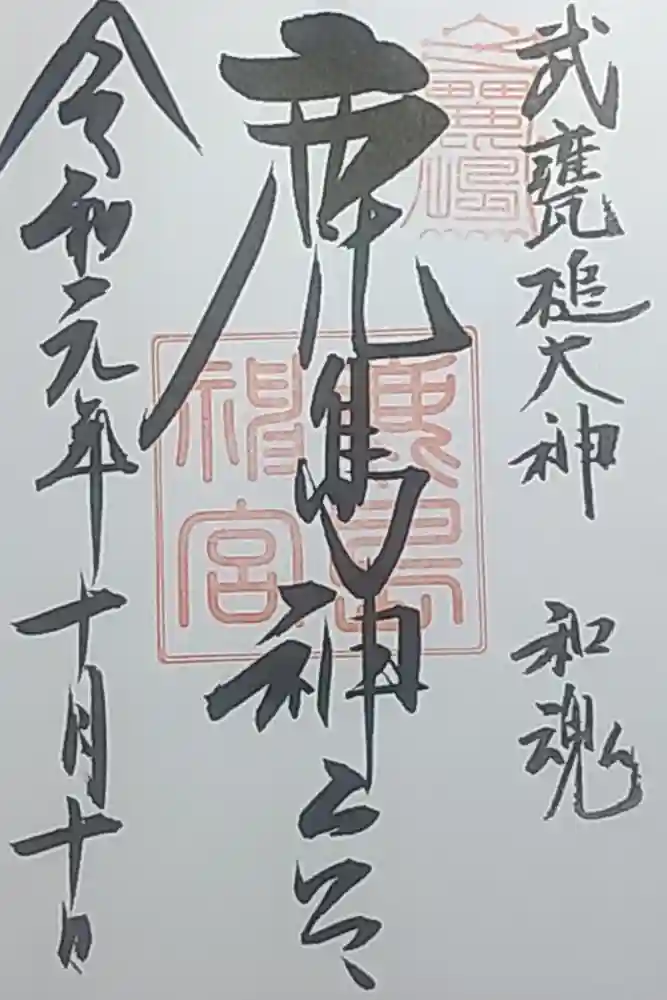 武甕槌大神 和魂
鹿嶋
鹿島神宮
鹿島
神宮
令和元年十月十日